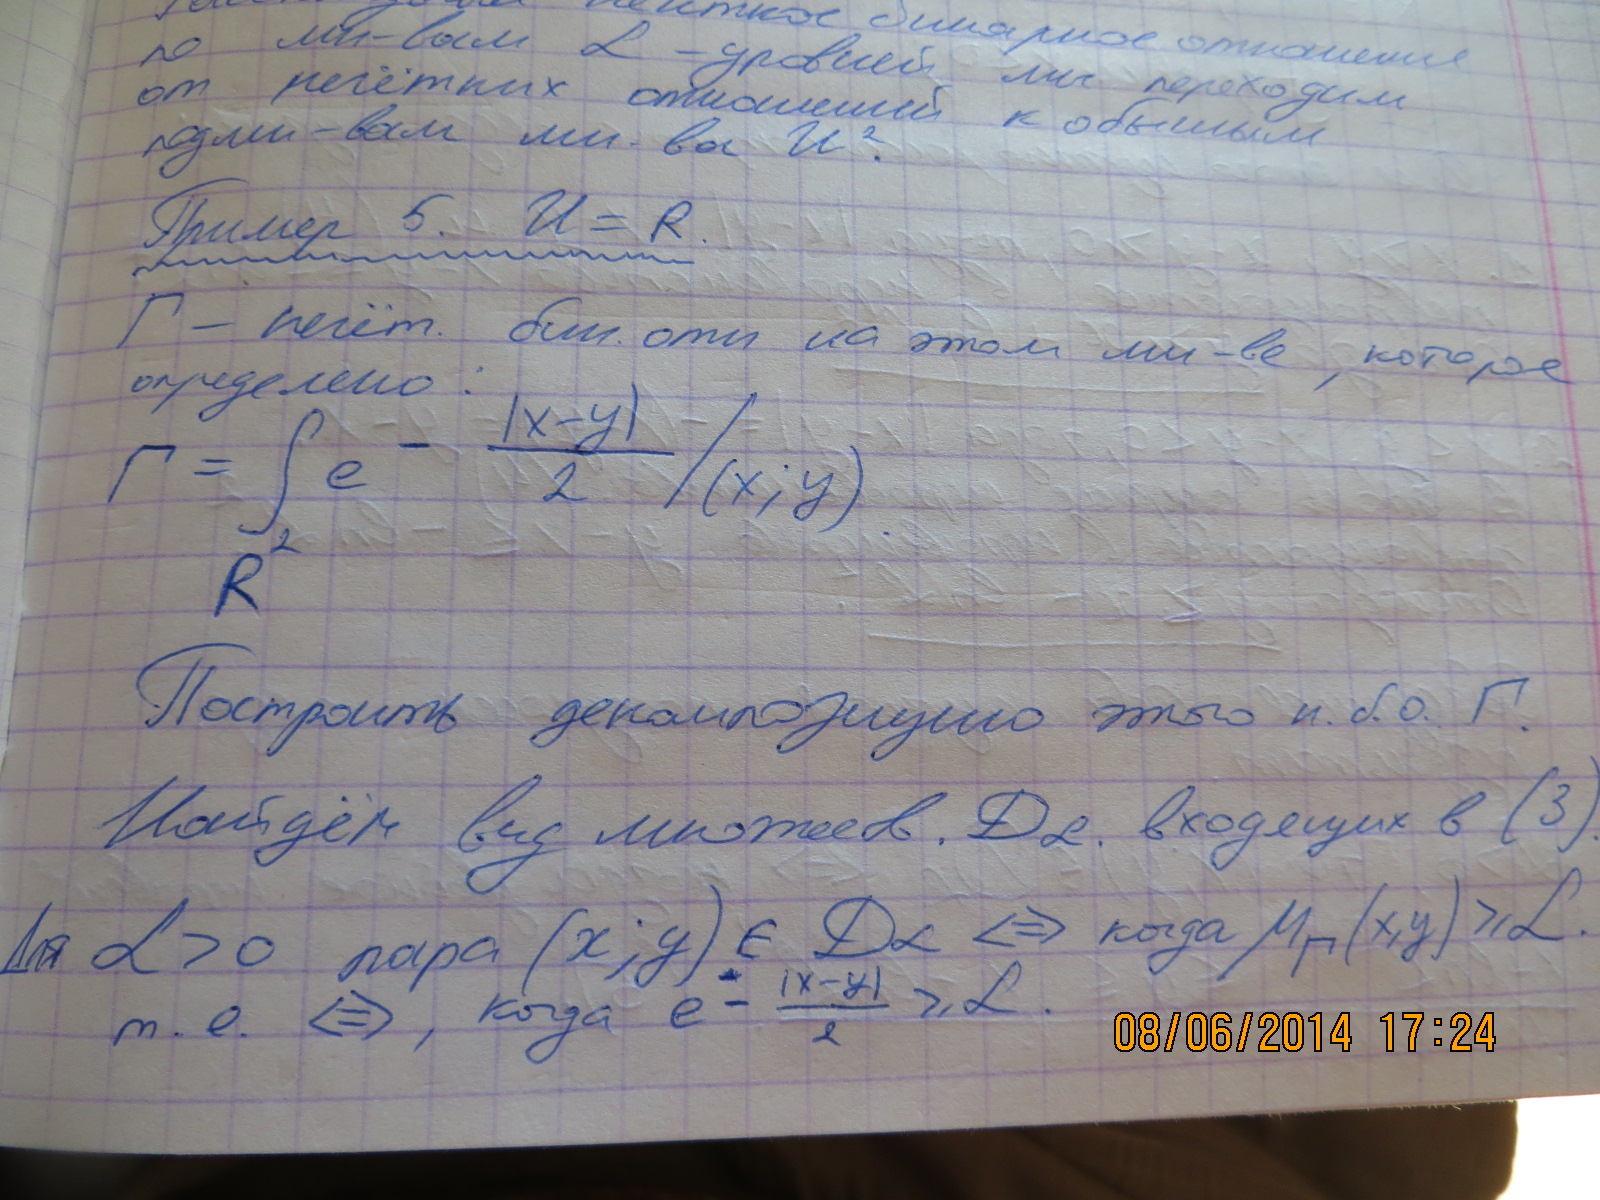 нечёткое бинарное отношение
по мн-вам α-уровней мы переходим
от нечётких отношений к обычным
подмн-вам мн-ва U².
Пример 5. U = R.
Γ – нечёт. бин. отн на этом мн-ве, которое
определено:
Γ = ∫_{R²} e^{-|x-y|/2} / (x; y).
Построить декомпозицию этого н.б.о. Γ.
Найдём вид множеств. D_α. входящих в (3).
Для α > 0 пара (x; y) ∈ D_α ⇔ когда μ_Γ(x,y) ≥ α.
т. е. ⇔, когда e^{-|x-y|/2} ≥ α.
08/06/2014 17:24